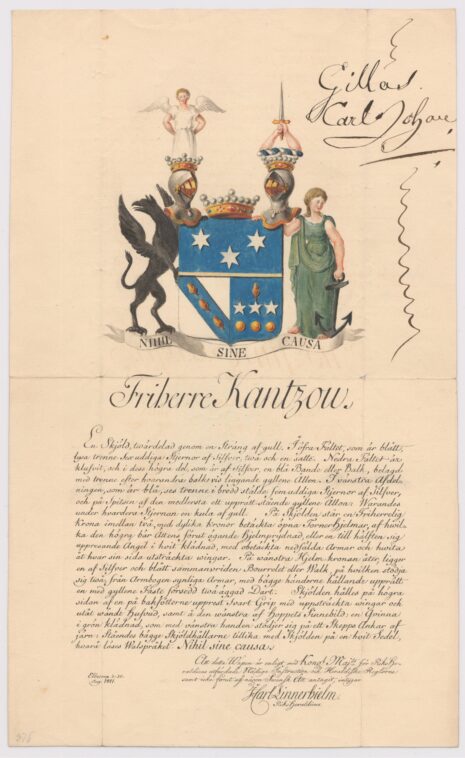 Gillas.
Carl Johan
NIHIL SINE CAUSA
Friherre Kantzow.
En Sköld, twärdelad genom en Sträng af gull. I öfra Fältet, som är blått,
tre uddiga Stjernor af Silfver, två och en satte. Nedra Fältet är
klufvit, och i dess högra del, som är af Silfver, en blå Bande eller Balk, belagd
med trenne efter hvarandra balkvis liggande gyllene Ållon. I vänstra Afdel-
ningen, som är blå, ses trenne i bredd stälde fem uddiga Stjernor af Silfver,
och på Spitsen af den medlersta ett upprätt stående gyllene Ållon: Warandes
under hvardera Stjernan en kula af gull. På Skölden står en Friherrelig
Krona imellan två, med dylika kronor betäckta öpna Torner Hjelmar, af hvil-
ka den högra bär Ättens förut ägande Hjelmprydnad, eller en till hälften sig
uppresande Ängel i hvit klädnad, med nedfälda Armar och hwita
åt hvar sin sida utsträckta wingar. På wänstra Hjelm kronan åter, ligger
en af Silfver och blått sammanvriden Bourrelet eller Wulk, på hvilken stödja
sig twå, från Armbogen synliga Armar, med bägge händerne hållande upprätt
en med gyllene Fäste försedd två äggad Dart. Skölden hålles på högra
sidan af en på bakfötterne upprest Svart Grip med uppsträckta wingar och
utåt wändt Hufvud, samt å den wänstra af Hoppets Sinnebild, en Qvinna
i grön klädnad, som med wänstra handen stödjer sig på ett Skepps Ankar af
jern: Stående bägge Sköldhållarne tillika med Skölden på en hvit Sedel,
hvarå läses Walspråket: Nihil sine causa.
Att detta Wapen är enligt med Kongl. Maj:ts för Riks He-
raldicus utfärdade Nådiga Instruction och Heraldiska Reglorne
samt icke förut af någon Svensk Ätt antagit, intygar
Karl Linnerhielm
Riks Heraldicus.